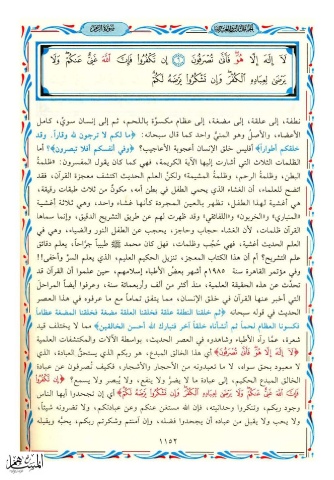 لَآ إِلَٰهَ إِلَّا هُوَ فَأَنَّىٰ تُصْرَفُونَ ٦ إِن تَكْفُرُوا فَإِنَّ اللَّهَ غَنِيٌّ عَنكُمْ وَلَا
يَرْضَىٰ لِعِبَادِهِ الْكُفْرَ وَإِن تَشْكُرُوا يَرْضَهُ لَكُمْ
نطفة، إلى علقة، إلى مضغة، إلى عظام مكسوَّة باللحم، ثم إلى إنسان سويّ، كامل
الأعضاء، والأصل وهو المنيّ واحد كما قال سبحانه: ﴿ما لكم لا ترجون لله وقاراً. وقد
خلقكم أطواراً﴾ أفليس خلق الإنسان أعجوبة الأعاجيب؟ ﴿وفي أنفسكم أفلا تبصرون﴾؟ أما
الظلمات الثلاث التي أشارت إليها الآية الكريمة، فهي كما كان يقول المفسرون: «ظلمةُ
البطن، وظلمة الرحم، وظلمة المشيمة» ولكنَّ العلم الحديث اكتشف معجزة القرآن، فقد
اتضح للعلماء، أن الغشاء الذي يحمي الطفل في بطن أمه، مكونٌ من ثلاث طبقات رقيقة،
هي أغشية لهذا الطفل، تظهر بالعين المجردة كأنها غشاء واحد، وهي ثلاثة أغشية
«المنباري» و«الخربون» و«اللفائفي» وقد ظهرت لهم عن طريق التشريح الدقيق، وإنما سماها
القرآن ظلمات، لأن الغشاء حجاب وحاجز، يحجب عن الطفل النور والضياء، وهي في
العلم الحديث أغشية، فهي حُجُب وظلمات، فهل كان محمد ﷺ طبيباً جرَّاحاً، يعلم دقائق
علم التشريح؟ أم أن هذا الكتاب المعجز، تنزيل الحكيم العليم، الذي يعلم السرَّ وأخفى!!
وفي مؤتمر القاهرة سنة ١٩٨٥م أشهر بعضُ الأطباء إسلامهم، حين علموا أن القرآن قد
تحدَّث عن هذه الحقيقة العلمية، منذ أكثر من ألف وأربعمائة سنة، وعرفوا أيضاً المراحل
التي أخبر عنها القرآن في خلق الإنسان، مما يتفق تماماً مع ما عرفوه في هذا العصر
الحديث في قوله سبحانه ﴿ثم خلقنا النطفة علقة فخلقنا العلقة مضغة فخلقنا المضغة عظاماً
فكسونا العظام لحماً ثم أنشأناه خلقاً آخر فتبارك الله أحسن الخالقين﴾ مما لا يختلف قيد
شعرة، عمَّا رآه الأطباء وشاهدوه في العصر الحديث، بواسطة الآلات والمكتشفات العلمية
﴿لَآ إِلَٰهَ إِلَّا هُوَ فَأَنَّىٰ تُصْرَفُونَ﴾ أي هذا الخالق المبدع، هو ربكم الذي يستحقُّ العبادة، الذي
لا معبود بحق سواه، لا ما تعبدونه من الأحجار والأشجار، فكيف تُصرفون عن عبادة
الخالق المبدع الحكيم، إلى عبادة ما لا يضرُّ ولا ينفع، ولا يُبصر ولا يسمع؟ ﴿إِن تَكْفُرُوا
فَإِنَّ اللَّهَ غَنِيٌّ عَنكُمْ وَلَا يَرْضَىٰ لِعِبَادِهِ الْكُفْرَ وَإِن تَشْكُرُوا يَرْضَهُ لَكُمْ﴾ أي إن تجحدوا أيها الناس
وجود ربكم، وتنكروا وحدانيته، فإن الله مستغن عنكم وعن عبادتكم، ولا تضرونه شيئاً،
ولا يحب ولا يقبل من عباده أن يجحدوا فضله، وإن آمنتم وشكرتم ربكم، يحبَّه ويقبله
١١٥٢